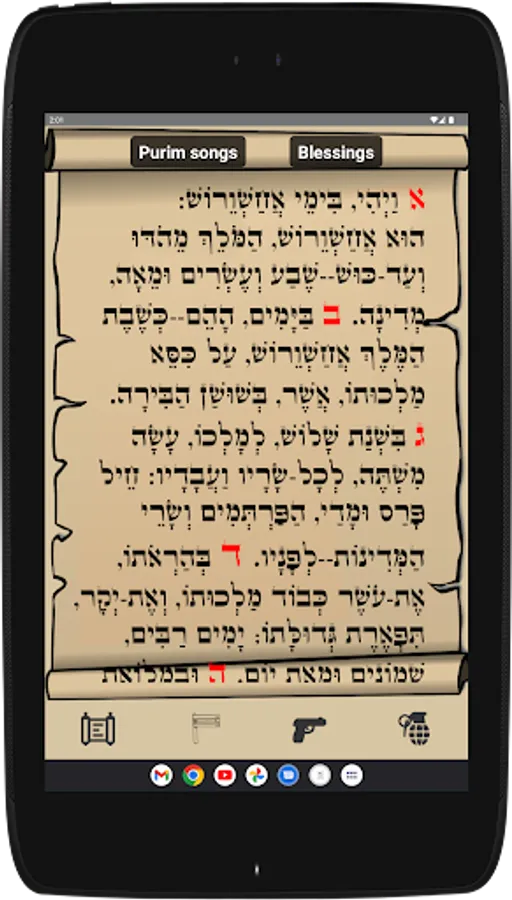 2:01
Purim songs Blessings
א וַיְהִי, בִּימֵי אֲחַשְׁוֵרוֹשׁ:
הוּא אֲחַשְׁוֵרוֹשׁ, הַמֹּלֵךְ מֵהֹדּוּ
וְעַד-כּוּשׁ--שֶׁבַע וְעֶשְׂרִים וּמֵאָה,
מְדִינָה. ב בַּיָּמִים, הָהֵם--כְּשֶׁבֶת
הַמֶּלֶךְ אֲחַשְׁוֵרוֹשׁ, עַל כִּסֵּא
מַלְכוּתוֹ, אֲשֶׁר, בְּשׁוּשַׁן הַבִּירָה.
ג בִּשְׁנַת שָׁלוֹשׁ, לְמָלְכוֹ, עָשָׂה
מִשְׁתֶּה, לְכָל-שָׂרָיו וַעֲבָדָיו: חֵיל
פָּרַס וּמָדַי, הַפַּרְתְּמִים וְשָׂרֵי
הַמְּדִינוֹת--לְפָנָיו. ד בְּהַרְאֹתוֹ,
אֶת-עֹשֶׁר כְּבוֹד מַלְכוּתוֹ, וְאֶת-יְקָר,
תִּפְאֶרֶת גְּדוּלָּתוֹ: יָמִים רַבִּים,
שְׁמוֹנִים וּמְאַת יוֹם. ה וּבִמְלוֹאת